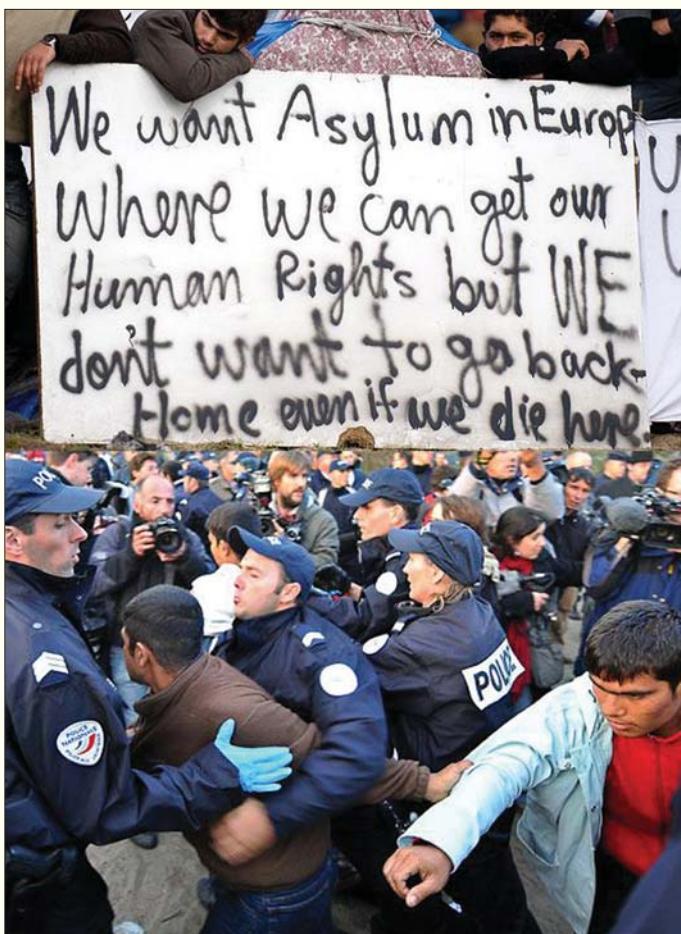 We want Asylum in Europ
Where we can get our
Human Rights but WE
don't want to go back-
Home even if we die here.
PO
POLICE
NATIONALE
POLICE